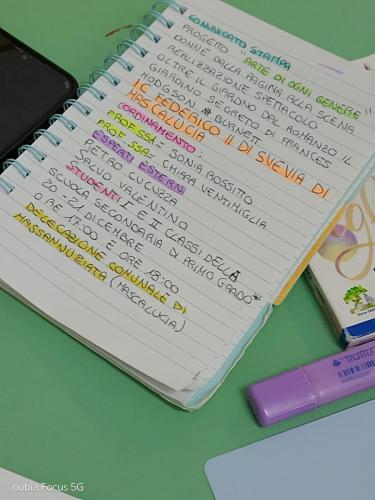 COMUNICATO STAMPA
PROGETTO "ARTE DI OGNI GENERE"
DONNE DALLA PAGINA ALLA SCENA
REALIZZAZIONE SPETTACOLO
OLTRE IL GIARDINO DAL ROMANZO IL
GIARDINO SEGRETO DI FRANCES
HODGSON BURNETT
I.C FEDERICO II DI SVEVIA DI
MASCALUCIA
COORDINAMENTO:
PROF.SSA - SONIA ROSSITTO
PROF.SSA - CHIARA VENTIMIGLIA
ESPERTI ESTERNI
PIETRO CUCUZZA
SALVO VALENTINO
STUDENTI I E II CLASSI DELLA
SCUOLA SECONDARIA DI PRIMO GRADO*
20 - 21 DICEMBRE
ORE 17:00 E ORE 18:00
DELEGAZIONE COMUNALE DI
MASSANNUNZIATA (MASCALUCIA)
Tratto
nubia Focus 5G